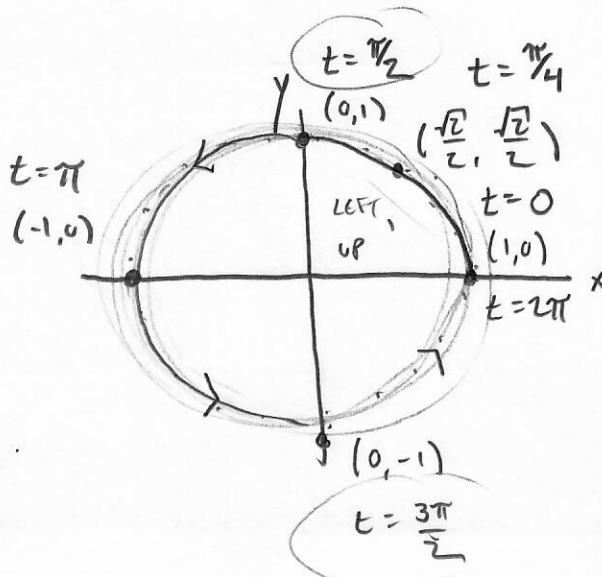 t = π/2
y
(0,1)
t = π/4
(√2/2, √2/2)
t = π
(-1,0)
LEFT,
UP
t = 0
(1,0)
x
t = 2π
(0,-1)
t = 3π/2